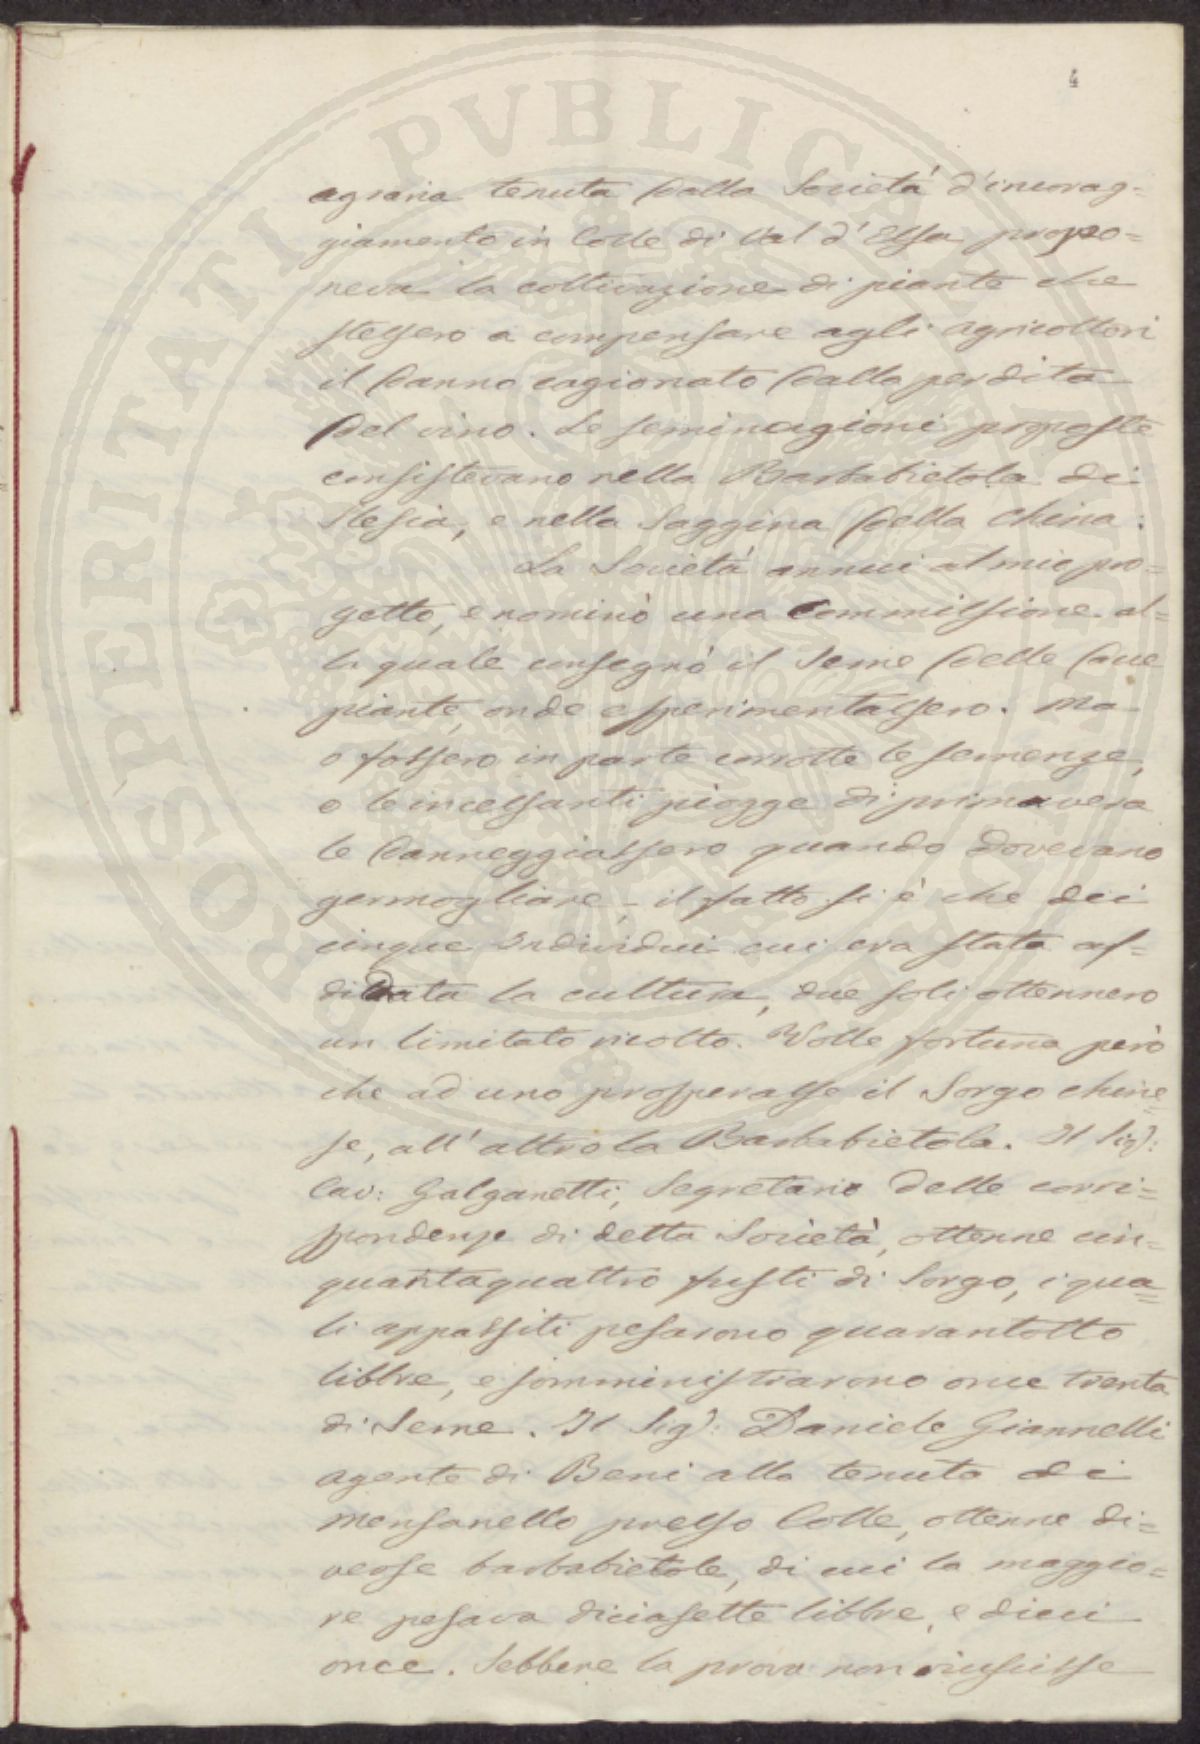 4
agraria tenuta dalla Società d'incorag-
giamento in Colle di Val d'Elsa propo=
neva la coltivazione di piante che
stessero a compensare agli agricoltori
il danno cagionato dalla perdita
del vino. Le seminagioni proposte
consistevano nella Barbabietola di
Slesia, e nella Saggina della China.
La Società annuì al mio pro=
getto, e nominò una Commissione al=
la quale consegnò il seme delle due
piante, onde esperimentassero. Ma
o fossero in parte corrotte le semenze,
o le incessanti piogge di primavera
le danneggiassero quando dovevano
germogliare, - il fatto si è che dei
cinque individui cui era stata af=
fidata la cultura, due soli ottennero
un limitato ricolto. Volle fortuna però
che ad uno prosperasse il Sorgo chine=
se, all'altro la Barbabietola. Il Sig:
Cav: Galganetti, Segretario delle corri=
spondenze di detta Società, ottenne cin=
quantaquattro fusti di Sorgo, i qua=
li appassiti pesarono quarantotto
libbre, e somministrarono once trenta
di Seme. Il Sig: Daniele Giannelli
agente di Beni alla tenuta di
Mensanello presso Colle, ottenne di=
verse barbabietole, di cui la maggio=
re pesava diciasette libbre, e dieci
once. Sebbene la prova non riuscisse
PROSPERITATI PVBLICAE